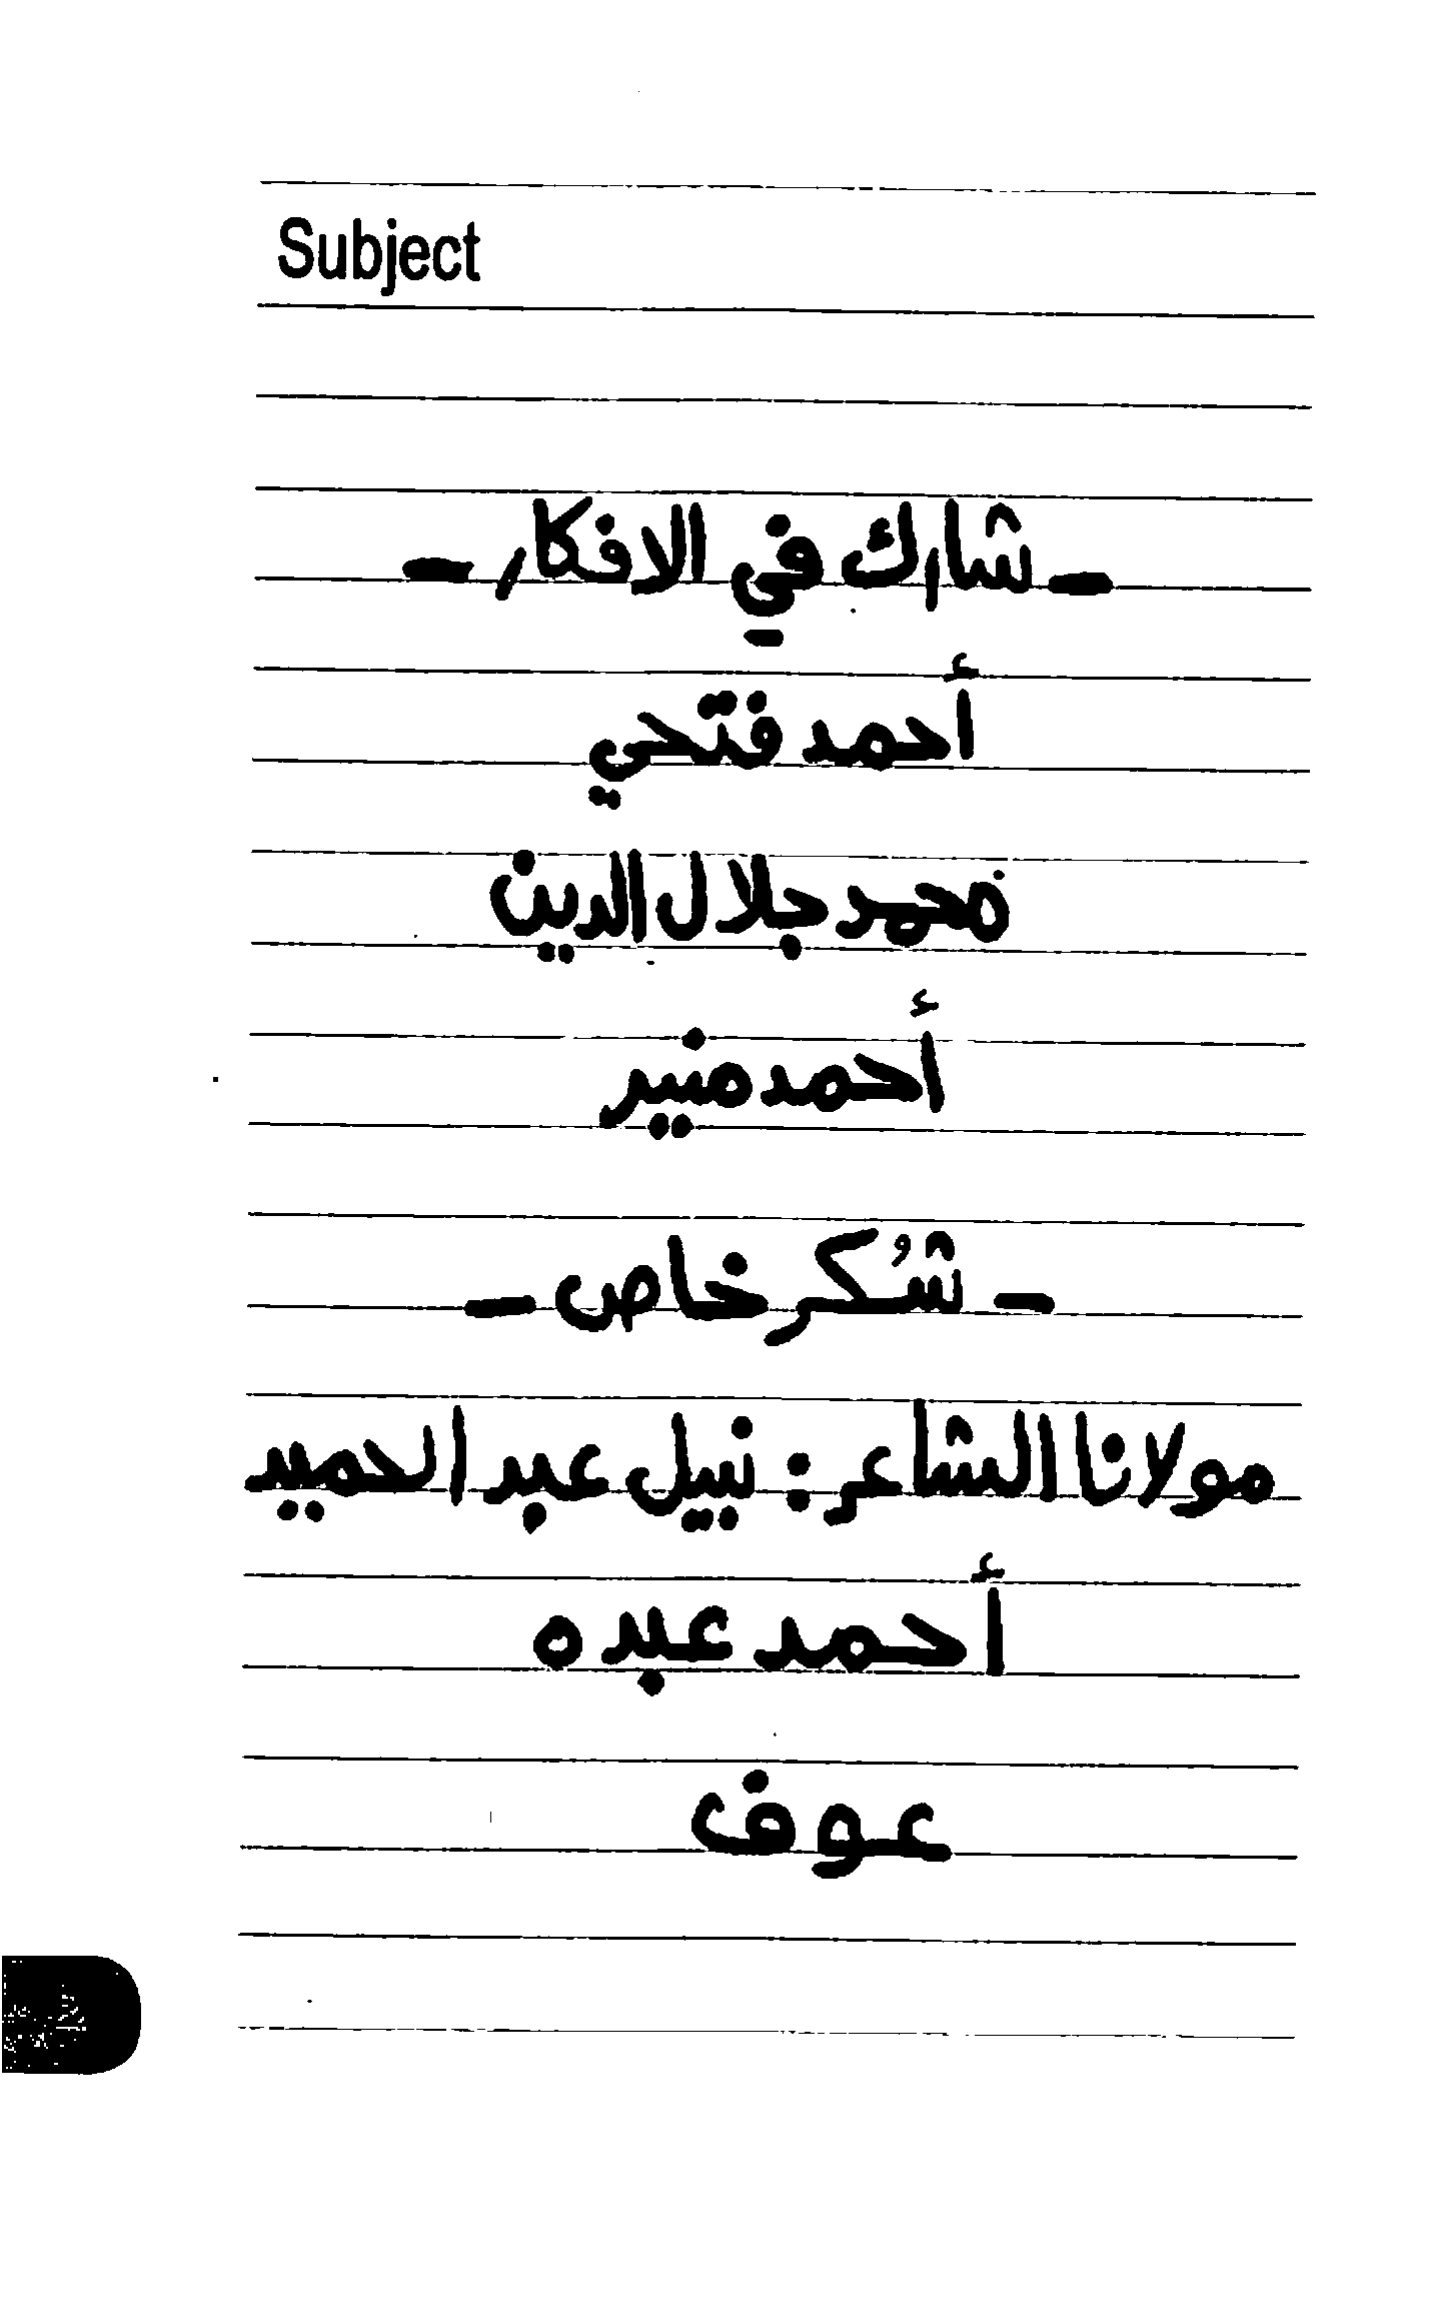 Subject
- شارك في الافكار -
أحمد فتحي
محمد جلال الدين
أحمد منير
- شُكر خاص -
مولانا الشاعر : نبيل عبد الحميد
أحمد عبده
عوف